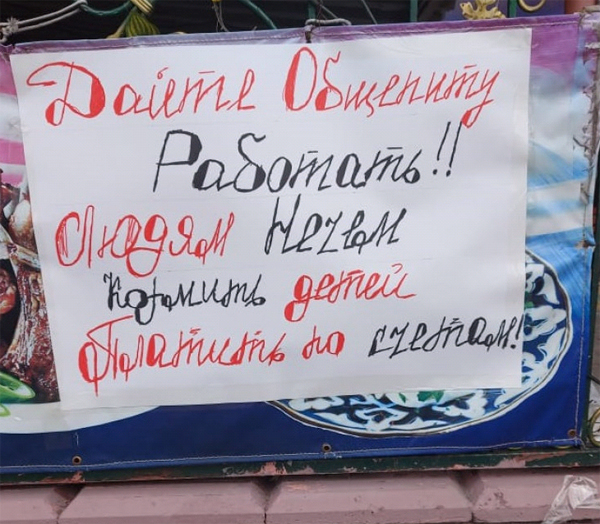 Дайте Общепиту
Работать!!
Людям Нечем
Кормить детей
Платить по счетам!